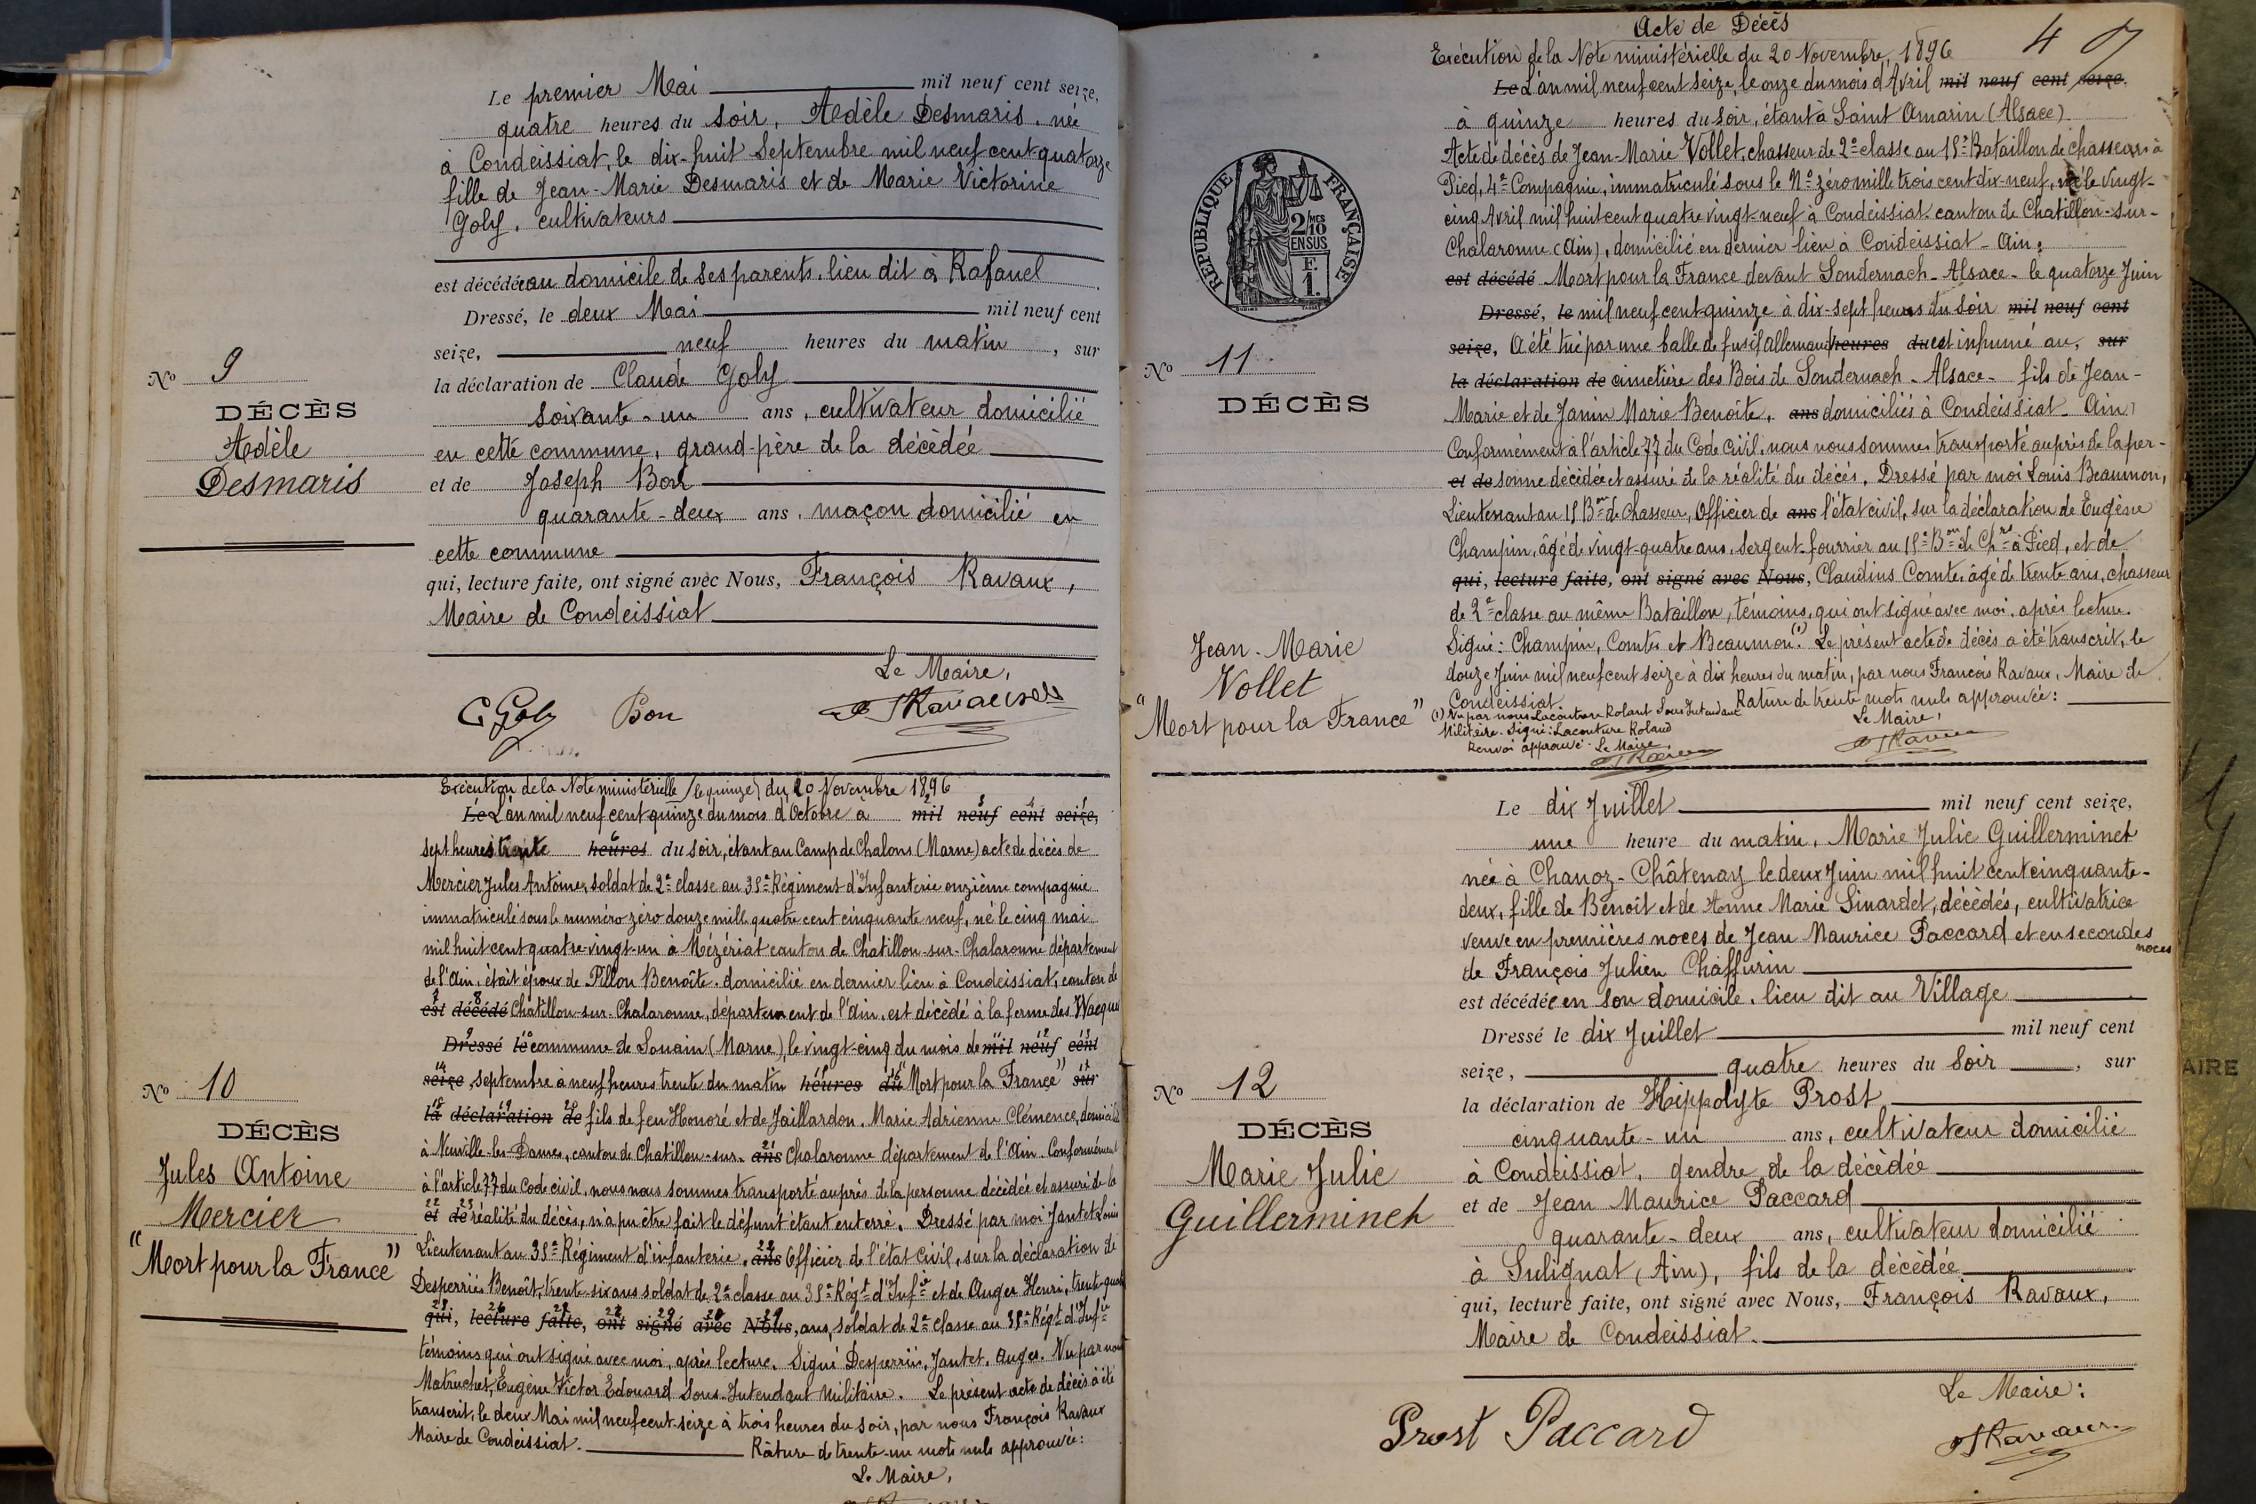 Le premier Mai mil neuf cent seize,
quatre heures du soir, Adèle Desmaris, née
à Condeissiat, le dix-huit Septembre mil neuf cent quatorze
fille de Jean-Marie Desmaris et de Marie Victorine
Goly, cultivateurs
est décédée au domicile de ses parents, lieu dit à Rafanel
Dressé, le deux Mai mil neuf cent
seize, neuf heures du matin, sur
la déclaration de Claude Goly
soixante-un ans, cultivateur domicilié
en cette commune, grand-père de la décédée
et de Joseph Bon
quarante-deux ans, maçon domicilié en
cette commune
qui, lecture faite, ont signé avec Nous, François Ravaux,
Maire de Condeissiat
Le Maire,
C. Goly Bon
No 9
DÉCÈS
Adèle
Desmaris
Exécution de la Note ministérielle (le quinze) du 20 Novembre 1896
Le L'an mil neuf cent quinze du mois d'Octobre à mil neuf cent seize,
sept heures trente heures du soir, étant au Camp de Chalons (Marne) acte de décès de
Mercier Jules Antoine, soldat de 2e classe au 35e Régiment d'Infanterie onzième compagnie
immatriculé sous le numéro zéro douze mille quatre cent cinquante neuf, né le cinq mai
mil huit cent quatre-vingt-un à Mézériat canton de Chatillon-sur-Chalaronne département
de l'Ain, était époux de Pillon Benoîte, domicilié en dernier lieu à Condeissiat, canton de
est décédé Chatillon-sur-Chalaronne, département de l'Ain, est décédé à la ferme des Wacques
Dressé le commune de Souain (Marne), le vingt-cinq du mois de mil neuf cent
seize, septembre à neuf heures trente du matin heures du "Mort pour la France" sur
la déclaration de fils de feu Honoré et de Jaillardon, Marie Adrienne Clémence, domiciliés
à Neuville-les-Dames, canton de Chatillon-sur- ans Chalaronne département de l'Ain. Conformément
à l'article 77 du Code civil, nous nous sommes transporté auprès de la personne décédée et assuré de la
et de réalité du décès, n'a pu être fait le défunt étant enterré. Dressé par moi Jantet Louis
Lieutenant au 35e Régiment d'infanterie, ans Officier de l'état civil, sur la déclaration de
Desperriés Benoît, trente-six ans soldat de 2e classe au 35e Régt d'Infie et de Auger Henri, trente-quatre
qui, lecture faite, ont signé avec Nous, ans, soldat de 2e classe au 35e Régt d'Infie
témoins qui ont signé avec moi, après lecture. Signé Desperriés, Jantet, Auger. Vu par nous
Matruchet, Eugène Victor Edouard Sous-Intendant Militaire. Le présent acte de décès à été
transcrit, le deux Mai mil neuf cent-seize à trois heures du soir, par nous François Ravaux
Maire de Condeissiat. Râture de trente-un mots nuls approuvée:
Le Maire,
No 10
DÉCÈS
Jules Antoine
Mercier
"Mort pour la France"
4
Acte de Décès
Exécution de la Note ministérielle du 20 Novembre 1896
Le L'an mil neuf cent seize, le onze du mois d'Avril mil neuf cent seize.
à quinze heures du soir, étant à Saint Amarin (Alsace)
Acte de décès de Jean-Marie Vollet, chasseur de 2e classe au 15e Bataillon de chasseurs à
Pied, 4e Compagnie, immatriculé sous le No zéro mille trois cent dix-neuf, né le vingt-
cinq Avril mil huit cent quatre vingt-neuf à Condeissiat canton de Chatillon-sur-
Chalaronne (Ain), domicilié en dernier lieu à Condeissiat - Ain:
est décédé Mort pour la France devant Sondernach - Alsace - le quatorze Juin
Dressé, le mil neuf cent quinze à dix-sept heures du soir mil neuf cent
seize, A été tué par une balle de fusil allemand heures du et inhumé au, sur
la déclaration de cimetière des Bois de Sondernach - Alsace - fils de Jean-
Marie et de Janin Marie Benoîte, ans domiciliés à Condeissiat - Ain)
Conformément à l'article 77 du Code Civil, nous nous sommes transporté auprès de la per-
et de sonne décédée et assuré de la réalité du décés. Dressé par moi Louis Beaumon,
Lieutenant au 15 Bon de Chasseur, Officier de ans l'état civil, sur la déclaration de Eugène
Champin, âgé de vingt-quatre ans, Sergent-fourrier au 15e Bon de Chrs à Pied, et de
qui, lecture faite, ont signé avec Nous, Claudius Comte, âgé de trente ans, chasseur
de 2e classe au même Bataillon, témoins, qui ont signé avec moi, après lecture.
Signé: Champin, Comte et Beaumon.(1) Le présent acte de décès a été transcrit, le
douze Juin mil neuf cent seize à dix heures du matin, par nous François Ravaux, Maire de
Condeissiat. Rature de trente mots nuls approuvée:
(1) Vu par nous Lacouture Roland Sous Intendant
Militaire. Signé: Lacouture Roland
Renvoi approuvé. Le Maire
Le Maire,
RÉPUBLIQUE FRANÇAISE
2/10
EN SUS
No 11
DÉCÈS
Jean-Marie
Vollet
"Mort pour la France"
Le dix Juillet mil neuf cent seize,
une heure du matin, Marie Julie Guillerminet
née à Chanoz-Châtenay le deux Juin mil huit cent cinquante-
deux, fille de Benoît et de Anne Marie Sinardet, décédés, cultivatrice
veuve en premières noces de Jean Maurice Paccard et en secondes
noces
de François Julien Chaffurin
est décédée en son domicile, lieu dit au Village
Dressé le dix Juillet mil neuf cent
seize, quatre heures du soir, sur
la déclaration de Hippolyte Prost
cinquante-un ans, cultivateur domicilié
à Condeissiat, gendre de la décédée
et de Jean Maurice Paccard
quarante-deux ans, cultivateur domicilié
à Sulignat (Ain), fils de la décédée
qui, lecture faite, ont signé avec Nous, François Ravaux,
Maire de Condeissiat.
Le Maire:
Prost Paccard
No 12
DÉCÈS
Marie Julie
Guillerminet
AIRE